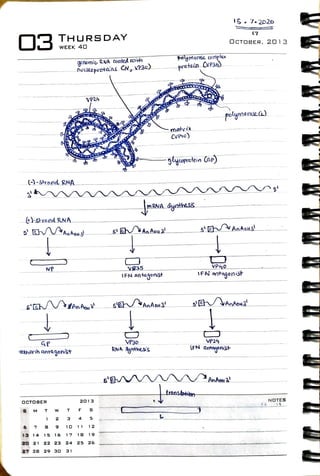 15 . 7 . 2020
03 THURSDAY
WEEK 40
OCTOBER, 2013
genomic RNA coated with
nucleoproteins (N, VP30)
Polymerase complex
protein (VP35)
VP24
polymerase (L)
matrix
(VP40)
glycoprotein (GP)
(-)-strand RNA
3'
5'
mRNA synthesis
(+)-strand RNA
5' AnAoH3'
5' AnAoH3'
5' AnAoH3'
NP
VP35
VP40
IFN antagonist
IFN antagonist
5' AnAoH3'
5' AnAoH3'
5' AnAoH3'
GP
VP30
VP24
tetherin antagonist
RNA synthesis
IFN antagonist
5' AnAoH3'
translation
L
OCTOBER 2013
NOTES
S M T W T F S
1 2 3 4 5
6 7 8 9 10 11 12
13 14 15 16 17 18 19
20 21 22 23 24 25 26
27 28 29 30 31